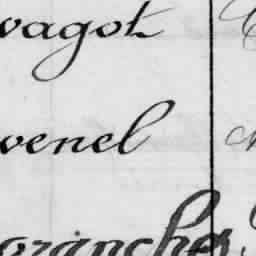 vagot
venel
oranches